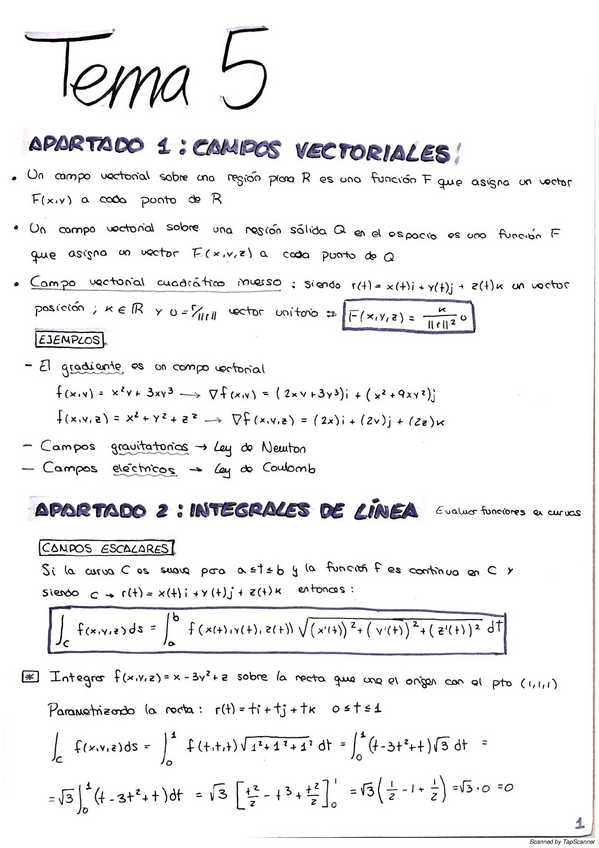 Tema 5
APARTADO 1 : CAMPOS VECTORIALES
• Un campo vectorial sobre una región plana R es una función F que asigna un vector
F(x,y) a cada punto de R
• Un campo vectorial sobre una región sólida Q en el espacio es una función F
que asigna un vector F(x,y,z) a cada punto de Q
• Campo vectorial cuadrático inverso : siendo r(t) = x(t)i + y(t)j + z(t)k un vector
posición ; k ∈ ℝ y u = r/||r|| vector unitario ⇒ F(x,y,z) = k/||r||² u
EJEMPLOS
- El gradiente es un campo vectorial
f(x,y) = x²y + 3xy³ → ∇f(x,y) = (2xy + 3y³)i + (x² + 9xy²)j
f(x,y,z) = x² + y² + z² → ∇f(x,y,z) = (2x)i + (2y)j + (2z)k
- Campos gravitatorios → Ley de Newton
- Campos eléctricos → Ley de Coulomb
APARTADO 2 : INTEGRALES DE LÍNEA Evaluar funciones en curvas
CAMPOS ESCALARES
Si la curva C es suave para a≤t≤b y la función f es continua en C y
siendo C → r(t) = x(t)i + y(t)j + z(t)k entonces :
∫_C f(x,y,z)ds = ∫_a^b f(x(t),y(t),z(t)) √((x'(t))² + (y'(t))² + (z'(t))²) dt
* Integrar f(x,y,z) = x - 3y² + z sobre la recta que une el origen con el pto (1,1,1)
Parametrizando la recta : r(t) = ti + tj + tk 0≤t≤1
∫_C f(x,y,z)ds = ∫_0^1 f(t,t,t) √(1²+1²+1²) dt = ∫_0^1 (t-3t²+t)√3 dt =
= √3 ∫_0^1 (t-3t²+t)dt = √3 [t²/2 - t³ + t²/2]_0^1 = √3 (1/2 - 1 + 1/2) = √3·0 = 0
1
Scanned by TapScanner